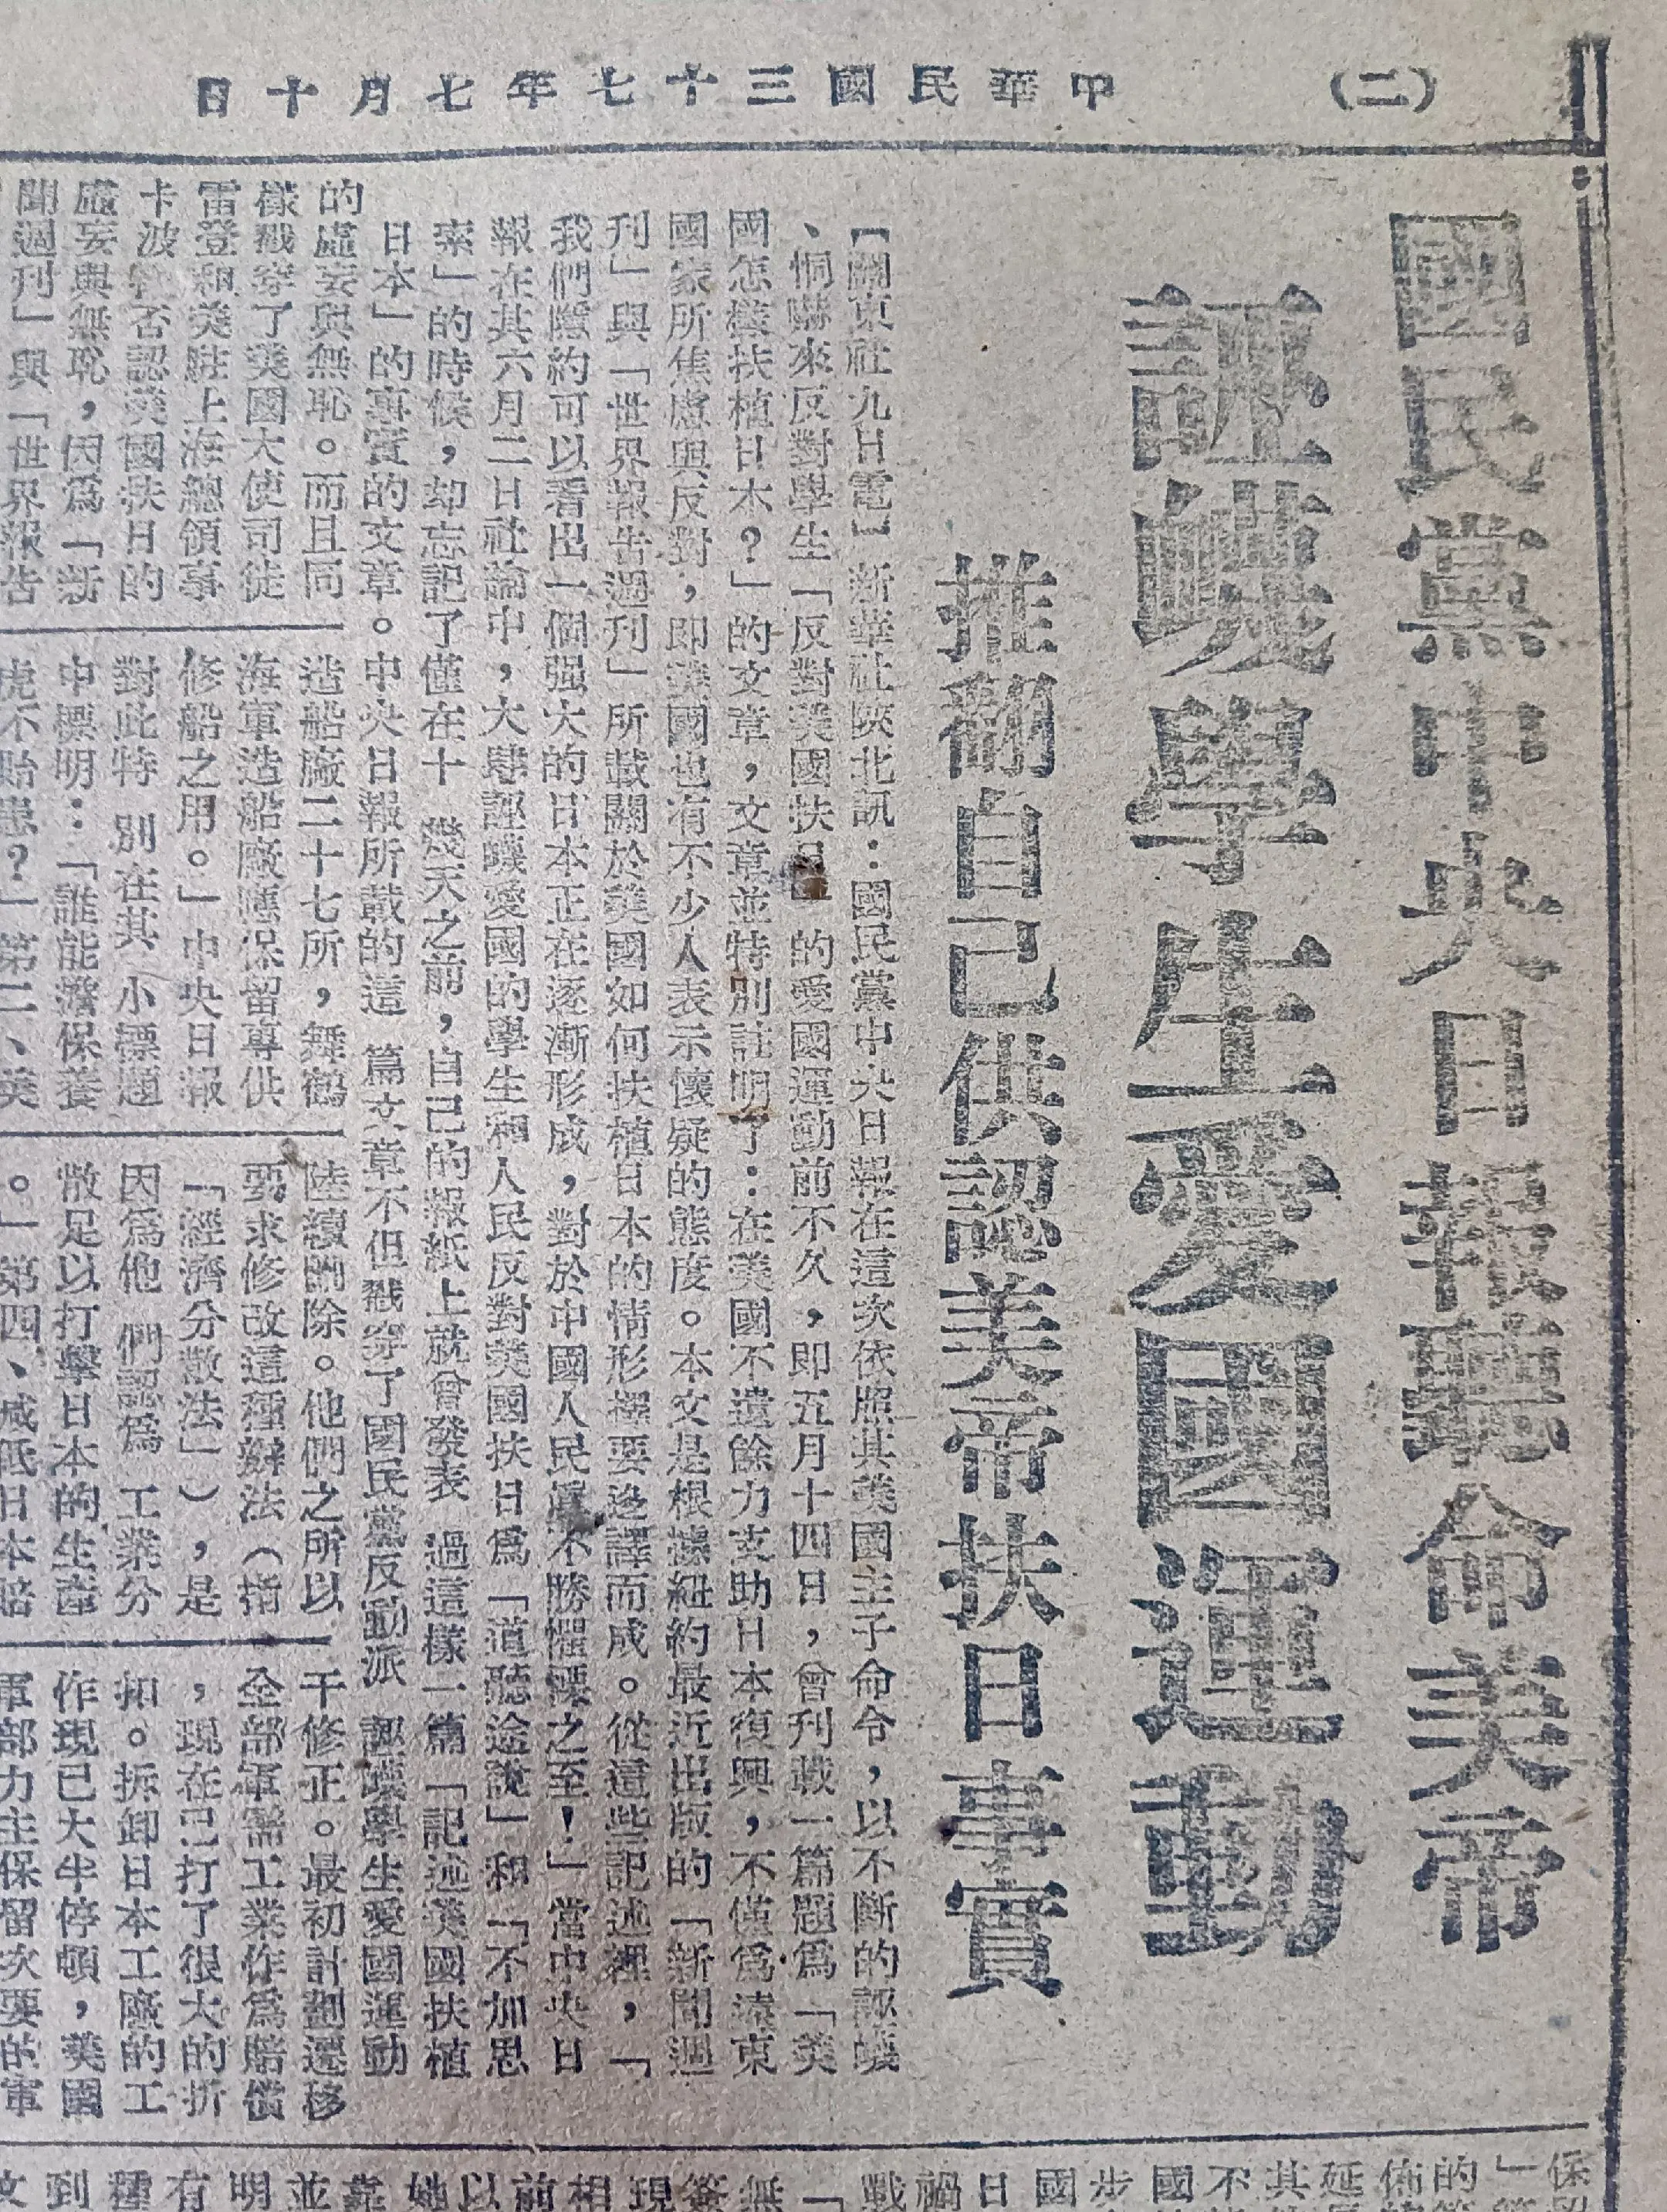 (二)
中華民國三十七年七月十日
國民黨中央日報奉命美帝
誣衊學生愛國運動
推翻自己供認美帝扶日事實
【關東社九日電】新華社陝北訊：國民黨中央日報在這次依照其美國主子命令，以不斷的誣衊
、恫嚇來反對學生「反對美國扶日」的愛國運動前不久，即五月十四日，曾刊載一篇題爲「美
國怎樣扶植日本？」的文章，文章並特別註明了：在美國不遺餘力支助日本復興，不僅爲遠東
國家所焦慮與反對，即美國也有不少人表示懷疑的態度。本文是根據紐約最近出版的「新聞週
刊」與「世界報告週刊」所載關於美國如何扶植日本的情形擇要迻譯而成。從這些記述裡，「
我們隱約可以看出一個强大的日本正在逐漸形成，對於中國人民眞不勝懼慄之至！」當中央日
報在其六月二日社論中，大肆誣衊愛國的學生和人民反對美國扶日爲「道聽途說」和「不加思
索」的時候，却忘記了僅在十幾天之前，自己的報紙上就曾發表過這樣一篇「記述美國扶植
日本」的事實的文章。中央日報所載的這篇文章不但戳穿了國民黨反動派誣衊學生愛國運動
的虛妄與無恥。而且同
樣戳穿了美國大使司徒
雷登和美駐上海總領事
卡波特否認美國扶日的
虛妄與無恥，因爲「新
聞週刊」與「世界報告
造船廠二十七所，舞鶴
海軍造船廠應保留專供
修船之用。」中央日報
對此特別在其小標題
中標明：「誰能擔保養
虎不貽患？」第二、美
陸續剷除。他們之所以
要求修改這種辦法（指
「經濟分散法」），是
因爲他們認爲工業分
散足以打擊日本的生產
。」第四、減低日本賠
干修正。最初計劃遷移
全部軍需工業作爲賠償
，現在已打了很大的折
扣。拆卸日本工廠的工
作現已大半停頓，美國
軍部力主保留次要的軍